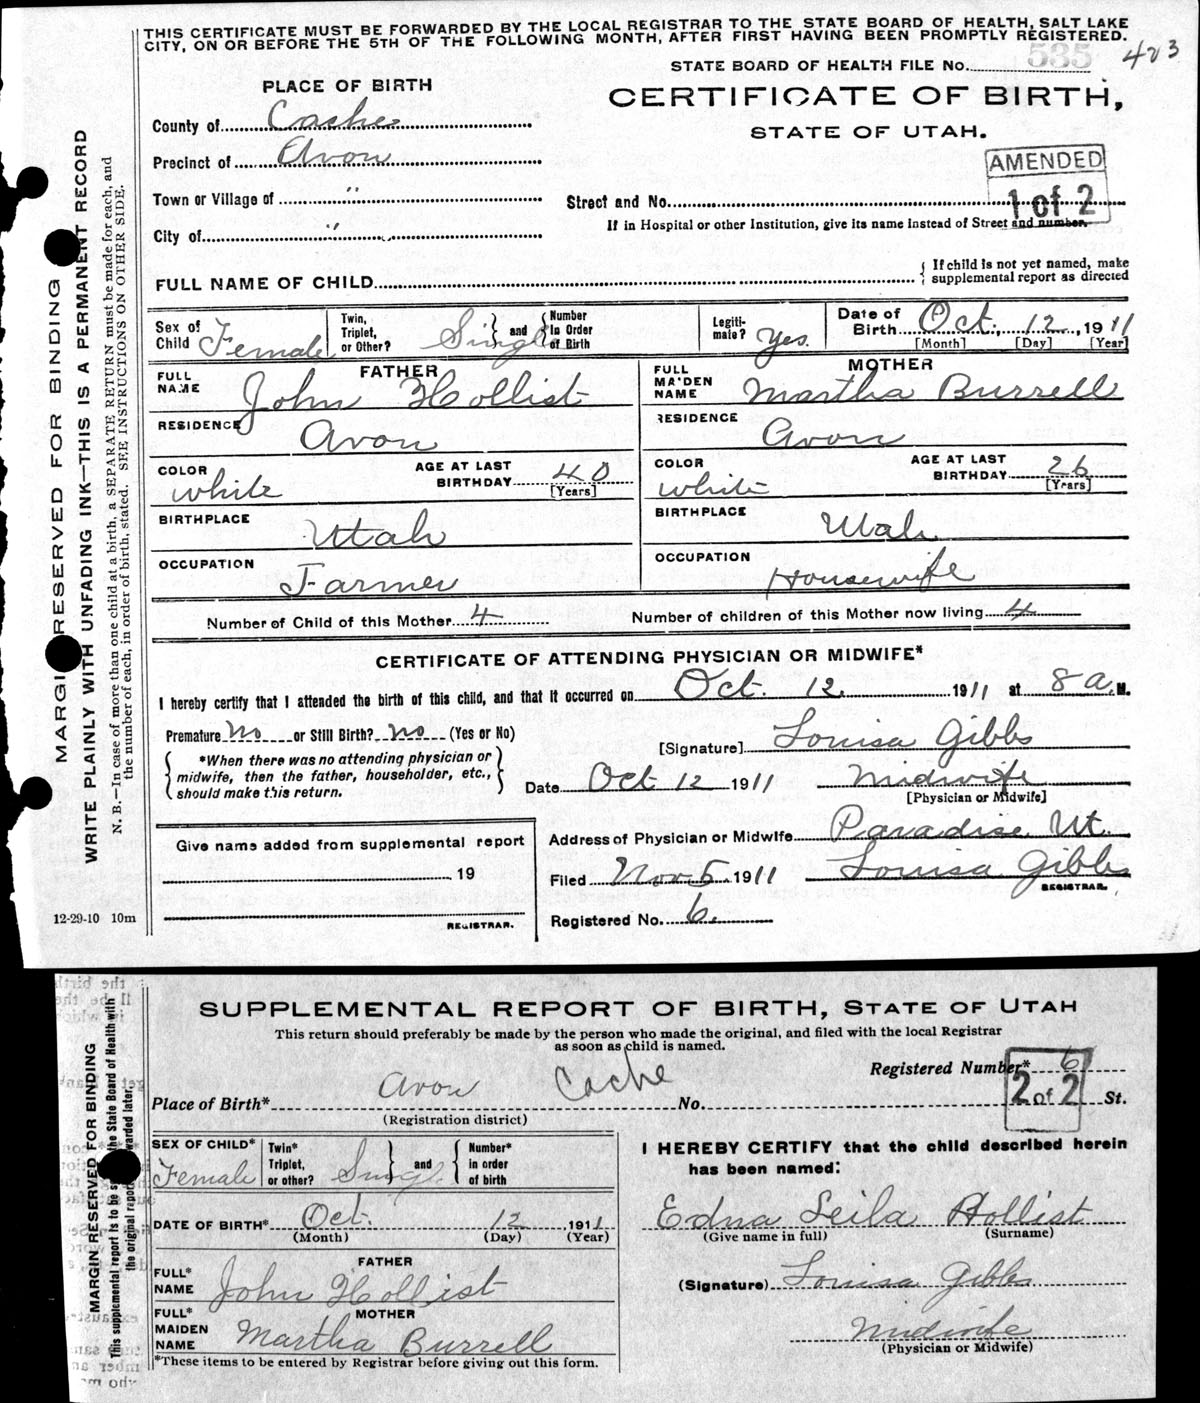 THIS CERTIFICATE MUST BE FORWARDED BY THE LOCAL REGISTRAR TO THE STATE BOARD OF HEALTH, SALT LAKE
CITY, ON OR BEFORE THE 5TH OF THE FOLLOWING MONTH, AFTER FIRST HAVING BEEN PROMPTLY REGISTERED.
STATE BOARD OF HEALTH FILE No. 535 423
PLACE OF BIRTH
CERTIFICATE OF BIRTH,
STATE OF UTAH.
County of Cache
Precinct of Avon
AMENDED
1 of 2
Town or Village of "
Street and No.
If in Hospital or other Institution, give its name instead of Street and number.
City of "
FULL NAME OF CHILD
If child is not yet named, make
supplemental report as directed
Sex of Child Female
Twin, Triplet, or Other? Singl and Number In Order of Birth
Legiti-mate? Yes.
Date of Birth Oct. 12, 1911
[Month] [Day] [Year]
FATHER
FULL NAME John Hollist
MOTHER
FULL MAIDEN NAME Martha Burrell
RESIDENCE Avon
RESIDENCE Avon
COLOR white AGE AT LAST BIRTHDAY 40 [Years]
COLOR white AGE AT LAST BIRTHDAY 26 [Years]
BIRTHPLACE Utah
BIRTHPLACE Utah
OCCUPATION Farmer
OCCUPATION Housewife
Number of Child of this Mother 4 Number of children of this Mother now living 4
CERTIFICATE OF ATTENDING PHYSICIAN OR MIDWIFE*
I hereby certify that I attended the birth of this child, and that it occurred on Oct. 12. 1911 at 8 a. M.
Premature No or Still Birth? No (Yes or No)
[Signature] Louisa Gibbs
*When there was no attending physician or
midwife, then the father, householder, etc.,
should make this return.
Date Oct 12 1911 Midwife
[Physician or Midwife]
Give name added from supplemental report
19
REGISTRAR.
Address of Physician or Midwife Paradise Ut.
Filed Nov 5 1911 Louisa Gibbs
REGISTRAR.
Registered No. 6.
12-29-10 10m
MARGIN RESERVED FOR BINDING
WRITE PLAINLY WITH UNFADING INK—THIS IS A PERMANENT RECORD
N. B.—In case of more than one child at a birth, a SEPARATE RETURN must be made for each, and
the number of each, in order of birth, stated. SEE INSTRUCTIONS ON OTHER SIDE.
SUPPLEMENTAL REPORT OF BIRTH, STATE OF UTAH
This return should preferably be made by the person who made the original, and filed with the local Registrar
as soon as child is named.
Registered Number* 6
2 of 2
Place of Birth* Avon Cache No. St.
(Registration district)
SEX OF CHILD* Female
Twin* Triplet, or other? Singl and Number* in order of birth
I HEREBY CERTIFY that the child described herein
has been named:
DATE OF BIRTH* Oct. 12 1911
(Month) (Day) (Year)
Edna Leila Hollist
(Give name in full) (Surname)
FATHER
FULL* NAME John Hollist
(Signature) Louisa Gibbs
MOTHER
FULL* MAIDEN NAME Martha Burrell
Midwife
(Physician or Midwife)
*These items to be entered by Registrar before giving out this form.
MARGIN RESERVED FOR BINDING